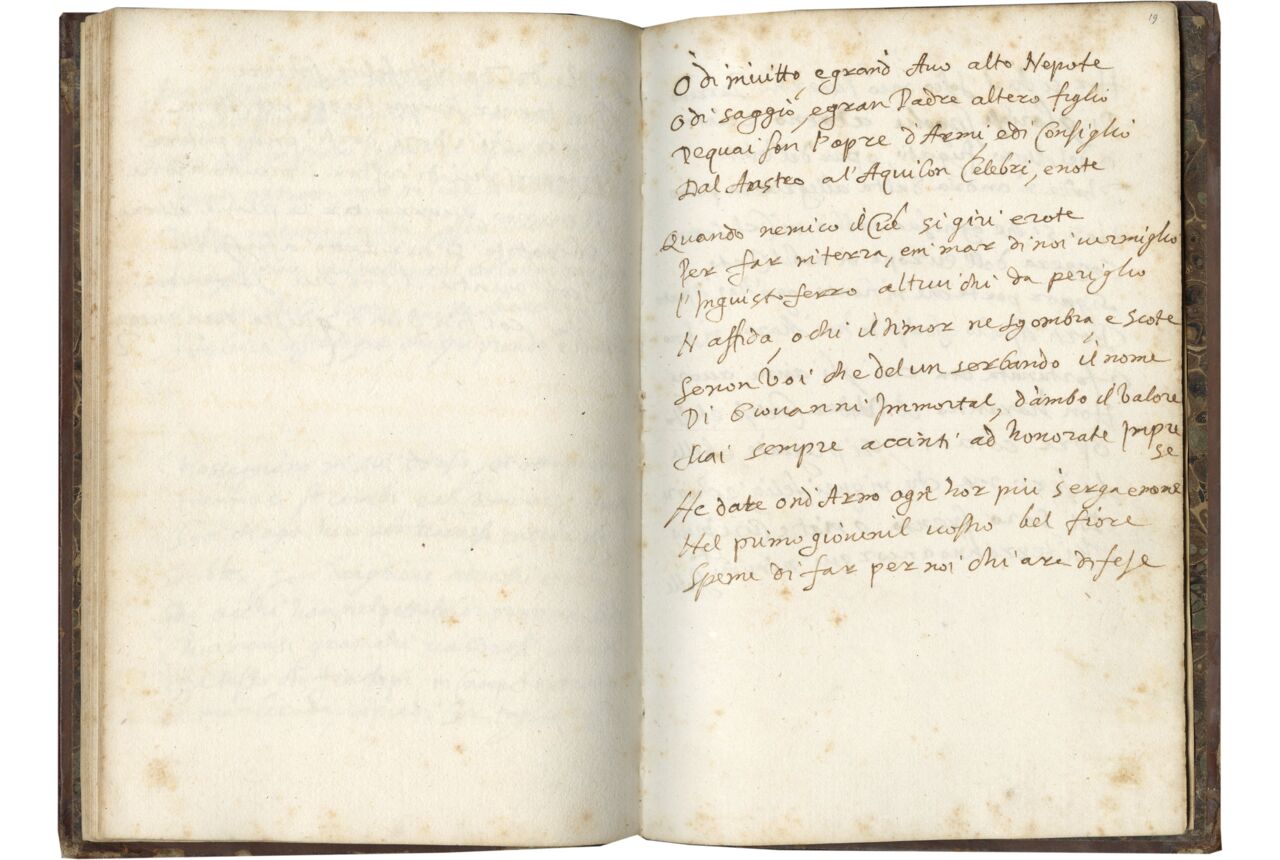 19
O di invitto, e grand Avo alto Nepote
O di saggio, e gran Padre altero figlio
De quai son l'opre d'Armi, e di Consiglio
Dal Austro al'Aquilon Celebri, e note
Quando nemico il Ciel si giri e rote
Per far in terra, e in mar di noi vermiglio
l'Ingiusto ferro altrui chi da periglio
N'affida, o chi il timor ne sgombra, e scote
Se non Voi che del un serbando il nome
Di Giovanni Immortal, d'ambo il Valore
Mai sempre accinti ad honorate Impre
se
Ne date ond'Arno ogni hor più s'erga e nome
Nel primo giovenil vostro bel fiore
Speme di far per noi chiare difese